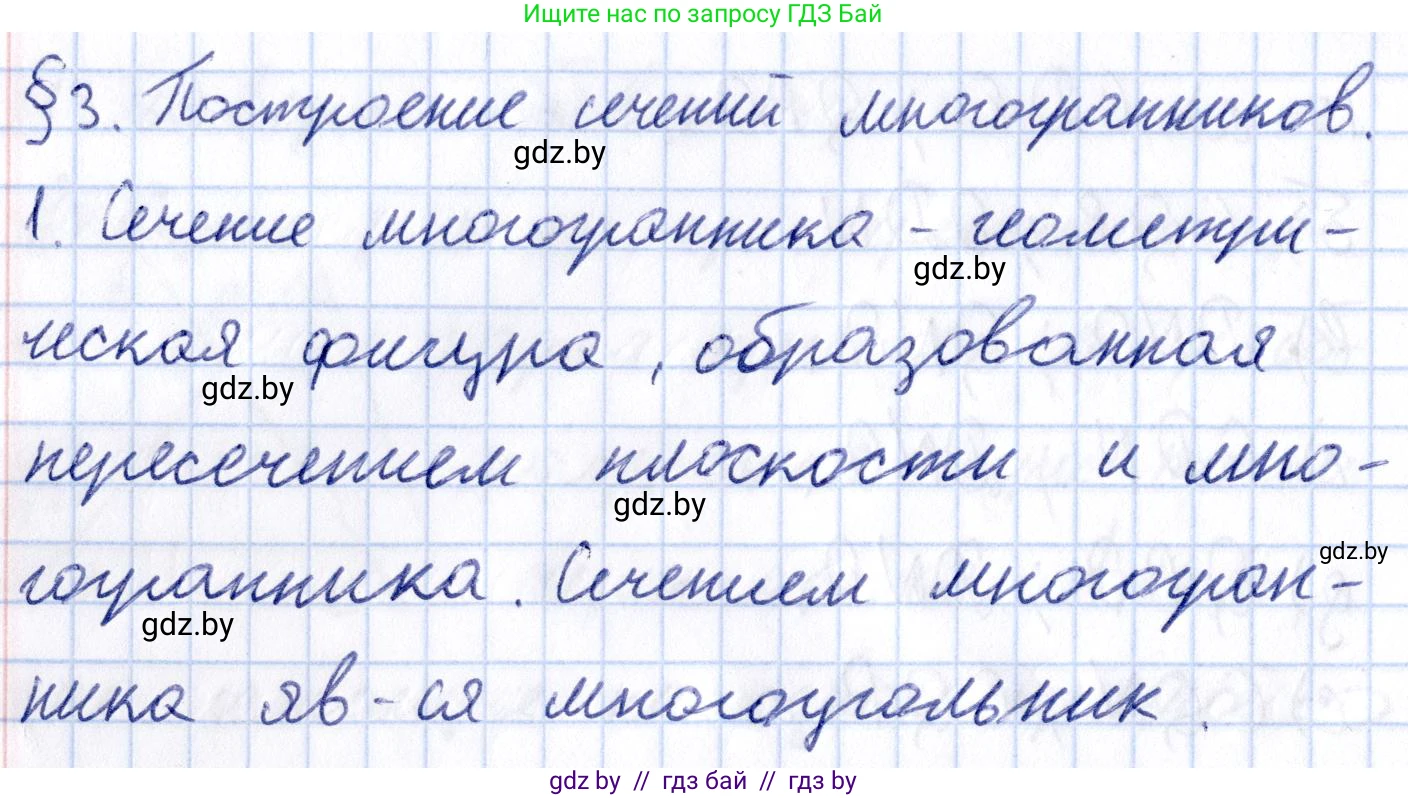 Ищите нас по запросу ГДЗ Бай
§3. Построение сечений многогранников.
gdz.by
1. Сечение многогранника - геометри-
gdz.by
ческая фигура, образованная
gdz.by
пересечением плоскости и мно-
gdz.by
gdz.by
гогранника. Сечением многогран-
gdz.by
ника яв-ся многоугольник.
gdz.by // гдз бай // гдз by